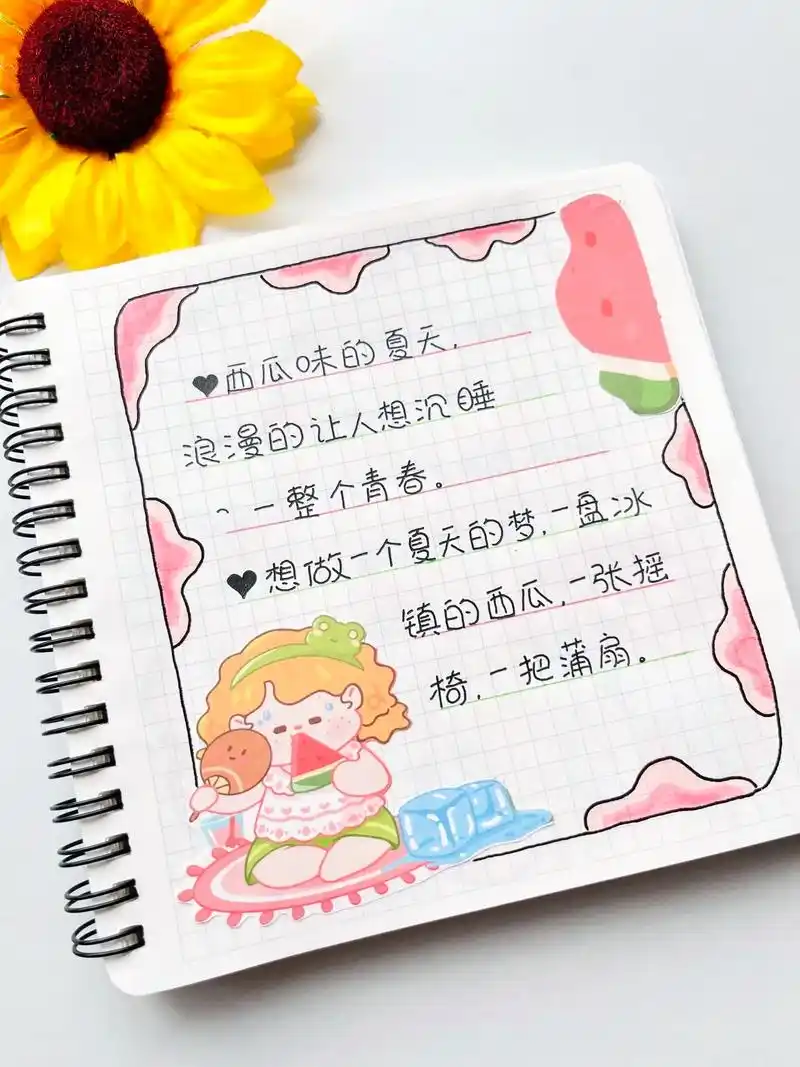 ♥西瓜味的夏天,
浪漫的让人想沉睡
一整个青春。
♥想做一个夏天的梦,一盘冰
镇的西瓜,一张摇
椅,一把蒲扇。